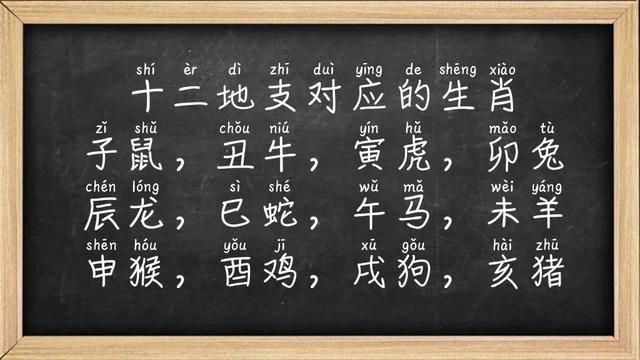 shí èr dì zhī duì yīng de shēng xiào
十二地支对应的生肖
zǐ shǔ chǒu niú yín hǔ mǎo tù
子鼠，丑牛，寅虎，卯兔
chén lóng sì shé wǔ mǎ wèi yáng
辰龙，巳蛇，午马，未羊
shēn hóu yǒu jī xū gǒu hài zhū
申猴，酉鸡，戌狗，亥猪